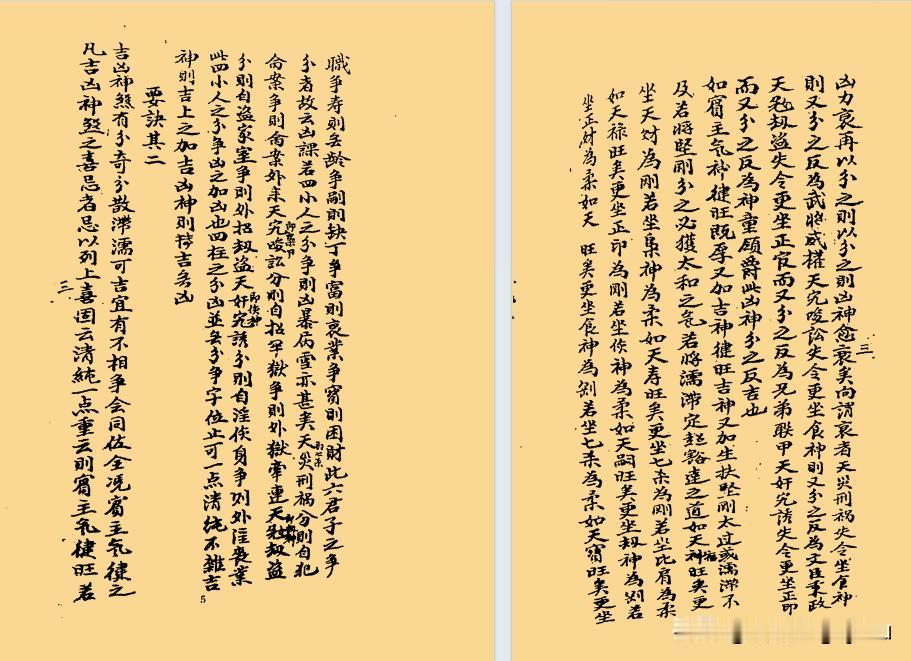 三
凶力衰再以分之則以分之則凶神愈衰矣向謂衰者天災刑禍失令坐食神
則又分之反為武將威權天宄唆訟失令更坐食神則又分之反為文臣秉政
天劫盜失令更坐正官而又分之反為兄弟聯甲天奸宄誘失令更坐正印
而又分之反為神童領爵此凶神分之反吉也
如賓主氣神健旺既厚又加吉神健旺吉神又加生扶堅剛太过或濡滯不
及若將堅剛分之必獲太和之氣若將濡滯定趁豁達之道如天旺矣更
坐天財為剛若坐梟神為柔如天寿旺矣更坐七杀為剛若坐比肩為柔
如天祿旺矣更坐正印為剛若坐傷神為柔如天嗣旺矣更坐劫神為剛若
坐正財為柔如天 旺矣更坐食神為剛若坐七杀為柔如天寶旺矣更坐
職爭寿則丢齡爭嗣則缺丁爭富則衰業爭寶則困財此六君子之爭
分者故云凶課若四小人之分爭則凶暴病雪亦甚矣天災即七杀刑禍分則自犯
命案爭則命案外来天宄即梟印唆訟分則自招牢獄爭則外獄牽連天劫盜
分則自盜家室爭則外招劫盜天奸宄即傷神誘分則自淫傷身爭则外淫喪業
此四小人之分爭凶之加凶也四柱之分凶並丢分爭字位止可一点清純不雜吉
神則吉上之加吉凶神則轉吉丢凶
要訣其二
吉凶神煞有分奇分散滯濡可吉宜有不相爭会同位全凭賓主气健之
凡吉凶神煞之喜忌者忌以列上喜固云清純一点重云則賓主气健旺若
三
5